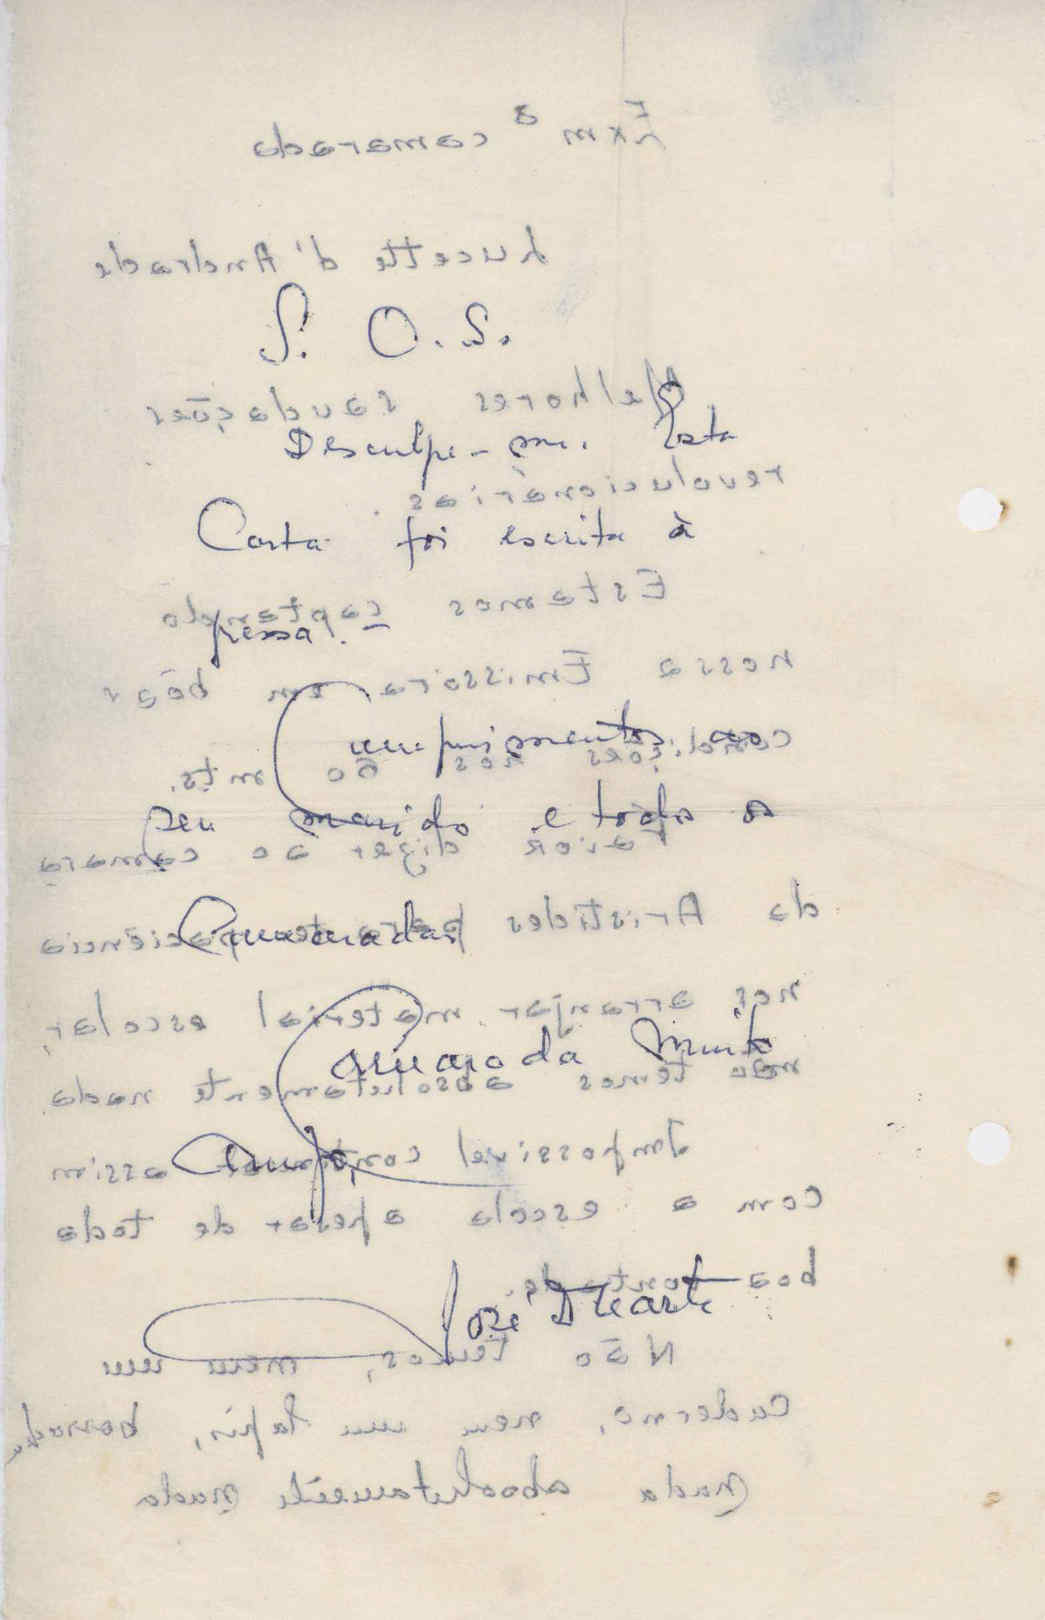 S. O. S.
Desculpe-me. Esta
Carta foi escrita à
pressa. –
Cumprimentos ao
seu marido e todos os
Camaradas
Camarada Muito
Amigo,
José Duarte
Exmª camarada
Lucette d'Andrade
Melhores saudações
revolucionárias.
Estamos captando
nossa Emissora em bôas
condições nos 60 mts.
Favor dizer ao camara
da Aristides para ter paciência
nos arranjar material escolar,
não temos absolutamente nada
Impossivel continuar assim
com a escola apesar de toda
boa vontade.
Não temos, nem um
Caderno, nem um lapis, borracha
Nada absolutamente Nada